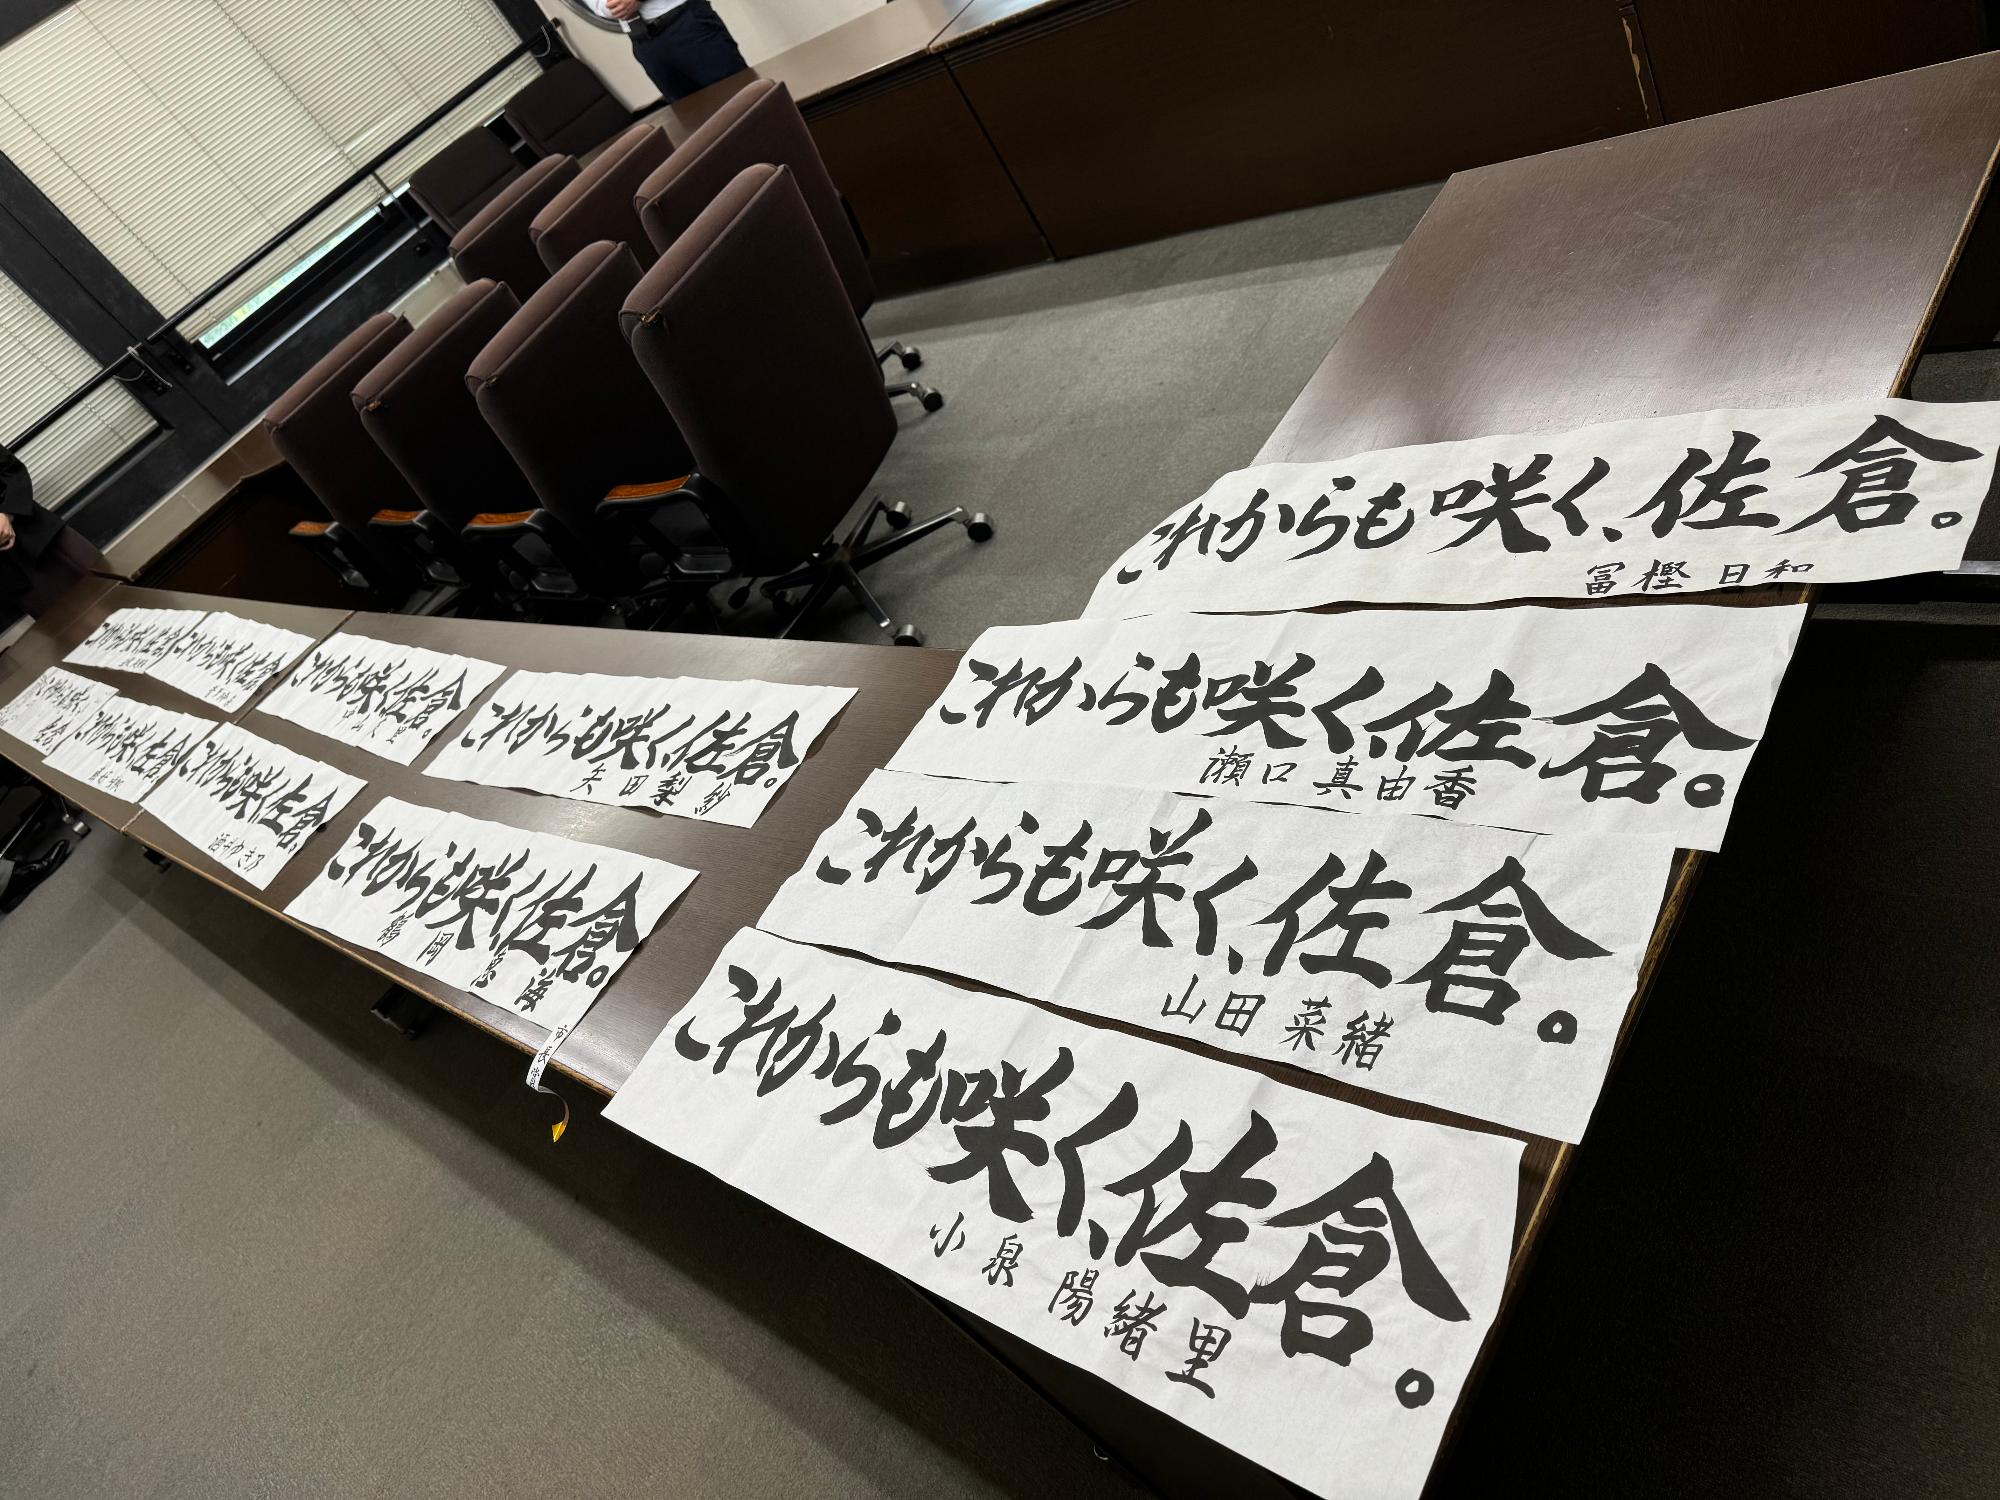 これからも咲く、佐倉。
冨樫 日和
これからも咲く、佐倉。
瀬口 真由香
これからも咲く、佐倉。
山田 菜緒
これからも咲く、佐倉。
小泉 陽緒里
これからも咲く、佐倉。
矢田 梨紗
これからも咲く、佐倉。
鶴岡 恵海
市長賞
これからも咲く、佐倉。
これからも咲く、佐倉。
酒井ゆきの
これからも咲く、佐倉
これからも咲く、佐倉
これからも咲く、佐倉